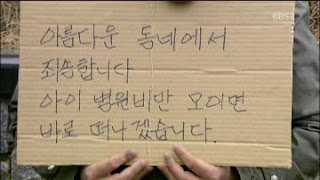 KBS2
아름다운 동네에서
죄송합니다
아이 병원비만 모이면
바로 떠나겠습니다.